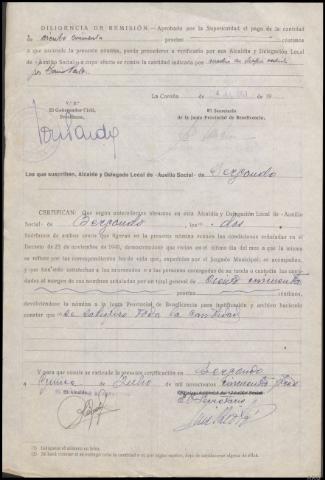 DILIGENCIA DE REMISIÓN.—Aprobado por la Superioridad el pago de la cantidad
de ciento cincuenta pesetas céntimos
a que asciende la presente nómina, puede procederse a verificarlo por esa Alcaldía y Delegación Local
de «Auxilio Social» a cuyo efecto se remite la cantidad indicada por
La Coruña, de de 19
V.º B.º
El Gobernador Civil,
Presidente,
El Secretario
de la Junta Provincial de Beneficencia,
Los que suscriben, Alcalde y Delegado Local de «Auxilio Social» de Bergondo
CERTIFICAN: Que según antecedentes obrantes en esta Alcaldía y Delegación Local de «Auxilio
Social» de Bergondo, los dos
huérfanos de ambos sexos que figuran en la presente nómina reunen las condiciones señaladas en el
Decreto de 23 de noviembre de 1940, demostrándose que vivían en el último día del mes a que la misma
se refiere por las correspondientes fes de vida que, expedidas por el Juzgado Municipal, se acompañan,
y que han sido satisfechas a las mencionadas personas encargadas de su tutela o custodia las cantidades
al margen de sus nombres señaladas por un total general de Ciento cincuenta
pesetas céntimos,
devolviéndose la nómina a la Junta Provincial de Beneficencia para justificación y archivo haciendo
constar que se satisfizo toda la cantidad
Y para que conste se extiende la presente certificación en Bergondo
a quince de Julio de mil novecientos cincuenta y
El Alcalde,
El Secretario
(1) Expresar el número en letra.